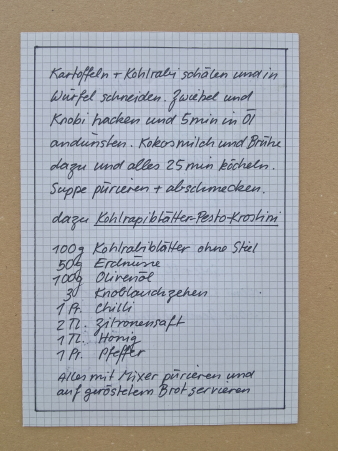 Kartoffeln + Kohlrabi schälen und in
Würfel schneiden. Zwiebel und
Knobi hacken und 5 min in Öl
andünsten. Kokosmilch und Brühe
dazu und alles 25 min köcheln.
Suppe pürieren + abschmecken.
dazu Kohlrapiblätter-Pesto-Krostini
100g Kohlrabiblätter ohne Stiel
50g Erdnüsse
100g Olivenöl
3 Knoblauchzehen
1 Pr. Chilli
2 TL. Zitronensaft
1 TL. Honig
1 Pr. Pfeffer
Alles mit Mixer pürieren und
auf geröstetem Brot servieren